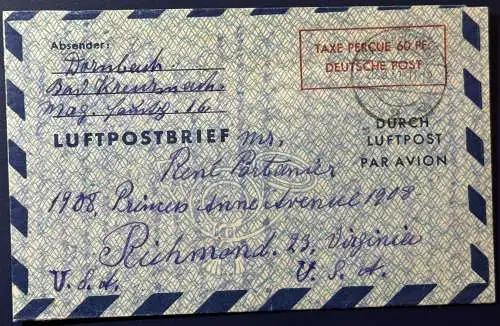 Absender:
Dornbach
Bad Kreuznach
Mag. 16
TAXE PERÇUE 60 PF.
DEUTSCHE POST
LUFTPOSTBRIEF
DURCH
LUFTPOST
PAR AVION
Mr.
René Partanier
1908, Princess Anne Avenue 1908
Richmond. 23. Virginia
U.S.A. U.S.A.